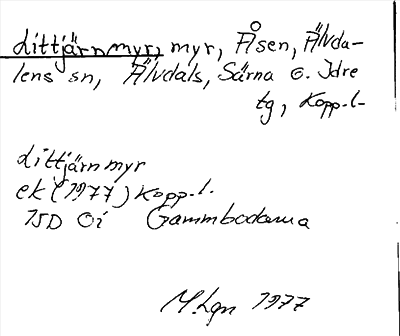 Littjärnmyr, myr, Åsen, Älvda-
lens sn, Älvdals, Särna o. Idre
tg, Kopp.l.
Littjärnmyr
ek (1977) Kopp.l.
15D 0i Gammbodarna
M.Lgn 1977